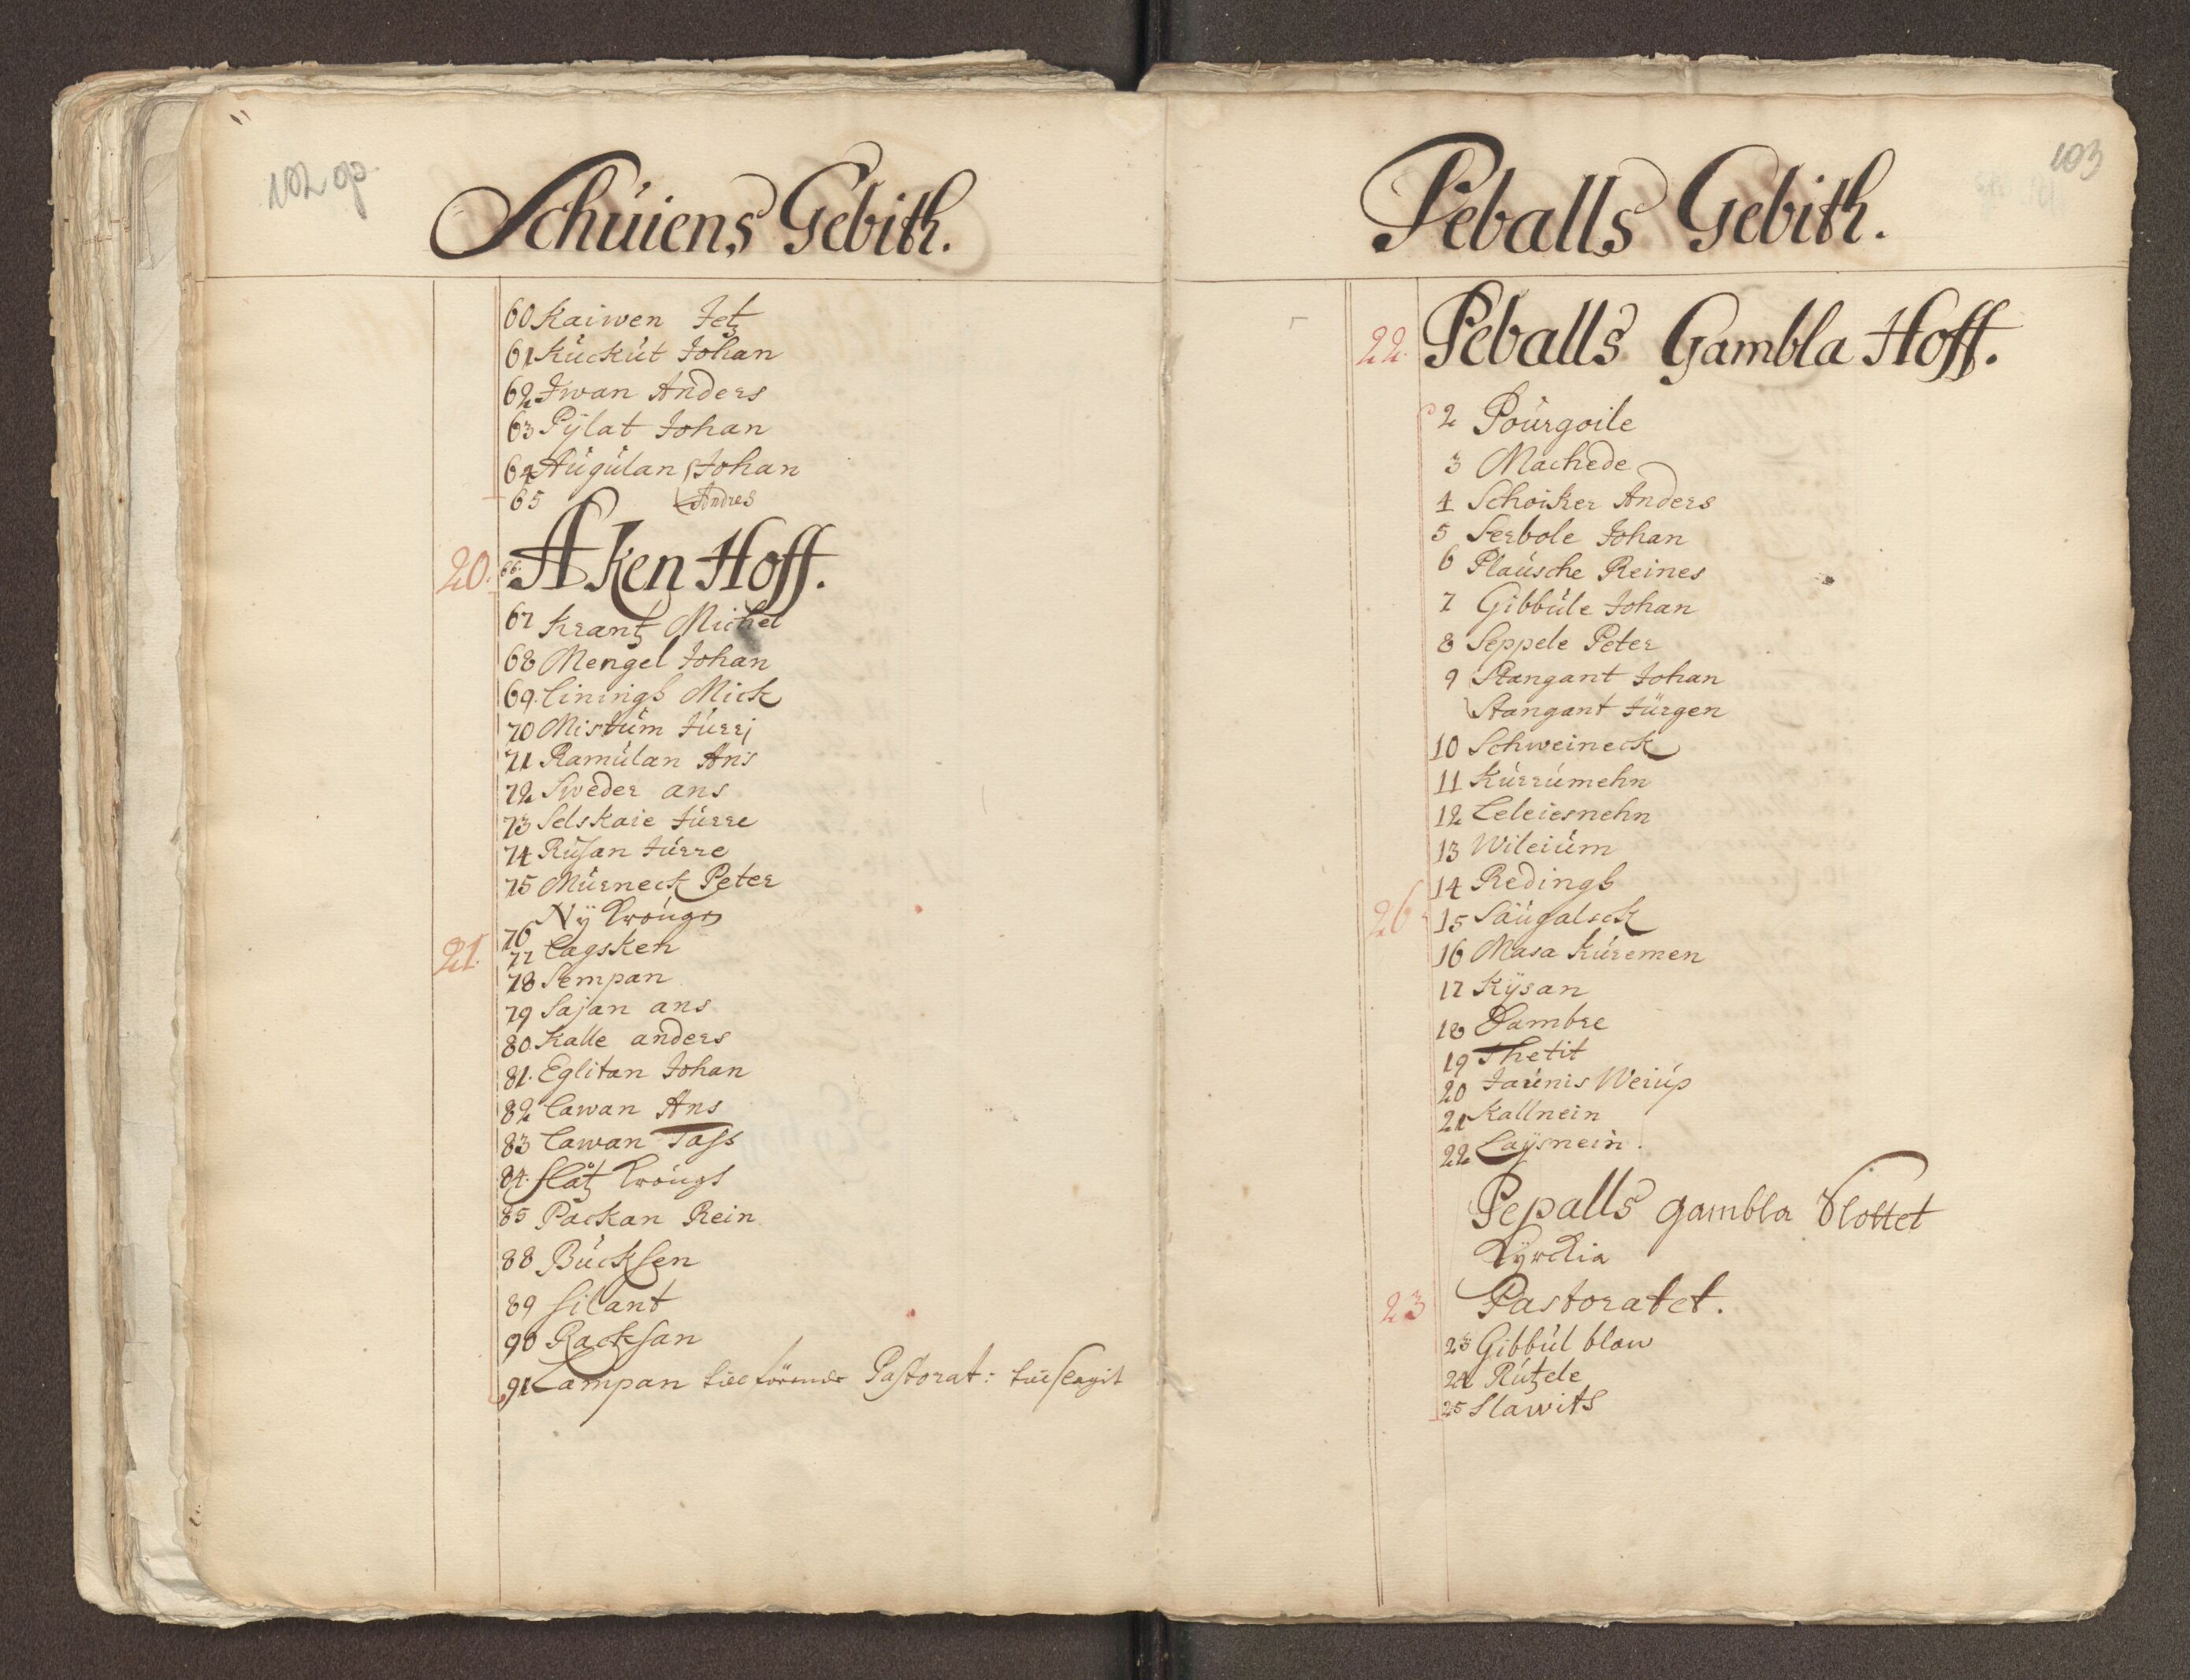 102 op
Schuiens Gebith.
60 Kaiwen Jetz
61 Kuckut Johan
62 Iwan Anders
63 Pÿlat Johan
64 Augulan Johan
65 Andres
20. 66. Aken Hoff.
67 Krantz Michel
68 Mengel Johan
69. Linings Mick
70 Mistum Jurri
71 Ramulan Ans
72 Sweder ans
73 Selskaie Jurre
74 Rusan Jurre
75 Murneck Peter
76 Nÿ Krougs
21. 77 Lagsken
78 Sempan
79 Sajan ans
80 Kalle anders
81. Eglitan Johan
82 Lawan Ans
83 Lawan Tass
84. Slåtz Krougs
85 Packan Rein
88 Bucksen
89 Silant
90 Racksan
91 Lampan Pastorat:
103
Peballs Gebith.
22. Peballs Gambla Hoff.
2 Pourgoile
3 Machede
4 Schoiker Anders
5 Serbole Johan
6 Plausche Reines
7 Gibbule Johan
8 Seppele Peter
9 Stangant Johan
Stangant Jürgen
10 Schweineck
11 Kurrumehn
12 Leleiesnehn
13 Wileium
14 Redings
26 15 Saugalseck
16 Masa Kuremen
17 Kÿsan
18 Dambre
19 Thetit
20 Jaunis Weiup
21 Kallnein
22 Laÿsnein.
Pepalls gambla Slottet
Kyrckia
23 Pastoratet.
23 Gibbul blaw
24 Rutzele
25 Slawits